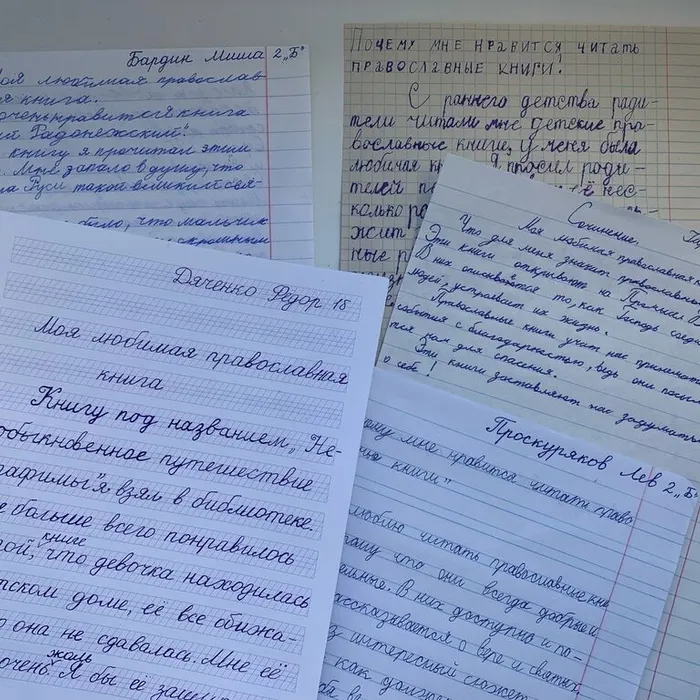 Бардин Миша 2 „Б"
Моя любимая православ
я книга.
очень нравится книга
ий Радонежский".
книгу я прочитал этим
. Мне запало в душу, что
на Руси такой великий свя-
было, что мальчик
скромным
Почему мне нравится читать
православные книги?
С раннего детства роди-
тели читали мне детские пра-
вославные книги, у меня была
любимая кн Я просил роди-
телей п её нес-
колько ра
жит
ные р
Сочинение.
Моя любимая православная к
Что для меня значит православн
Эти книги открывают на Промысл
В них описывается то, как Господь
людей, устраивает их жизнь.
Православные книги учат нас принимат
события с благодарностью, ведь они посы
тся нам для спасения.
Эти книги заставляют нас задумать
о себе!
Дяченко Федор 1Б
Моя любимая православная
книга
Книгу под названием „Не-
обыкновенное путешествие
рафимы" я взял в библиотеке.
е больше всего понравилось
книге
той, что девочка находилась
тском доме, её все обижа-
о она не сдавалась. Мне её
жаль
очень. Я бы её защи
Проскуряков Лев 2 „Б"
ему мне нравится читать право
ые книги"
люблю читать православные кни
тому что они всегда добрые и
емные. В них доступно и по-
ассказывается о вере и святых
з интересный сюжет
как долго